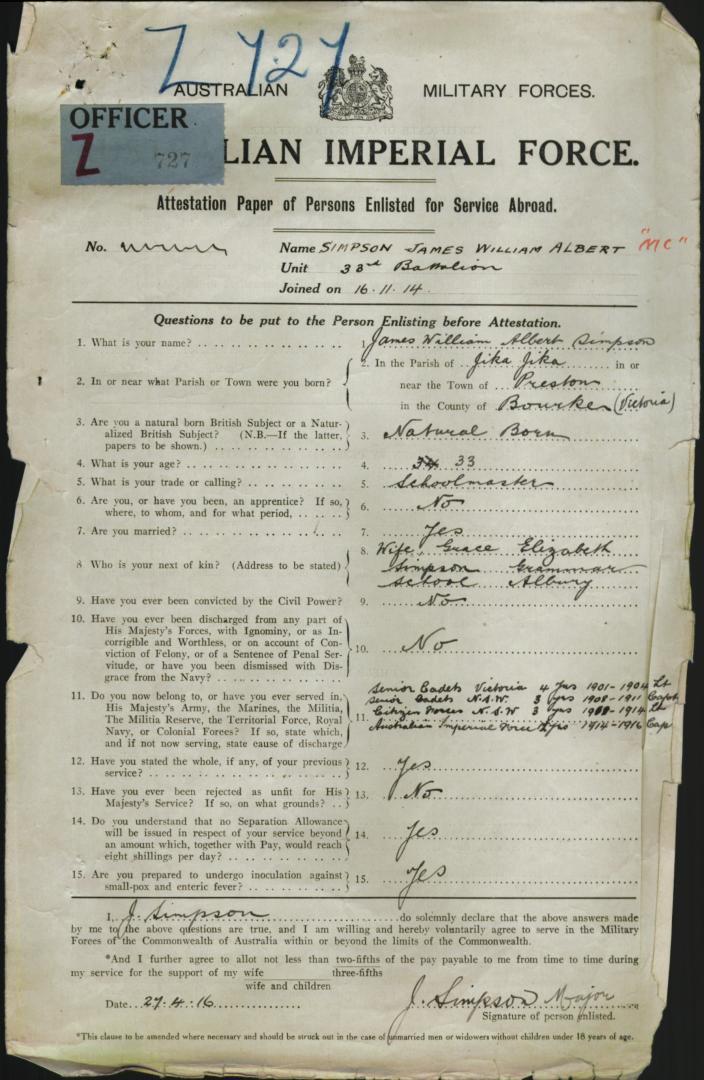 Z 727
AUSTRALIAN MILITARY FORCES.
OFFICER
Z 727
LIAN IMPERIAL FORCE.
Attestation Paper of Persons Enlisted for Service Abroad.
No. Name SIMPSON JAMES WILLIAM ALBERT "MC"
Unit 33rd Battalion
Joined on 16.11.14.
Questions to be put to the Person Enlisting before Attestation.
1. What is your name? 1. James William Albert Simpson
2. In or near what Parish or Town were you born? 2. In the Parish of Jika Jika in or
near the Town of Preston
in the County of Bourke (Victoria)
3. Are you a natural born British Subject or a Natur-
alized British Subject? (N.B.—If the latter, 3. Natural Born
papers to be shown.)
4. What is your age? 4. 34 33
5. What is your trade or calling? 5. Schoolmaster
6. Are you, or have you been, an apprentice? If so, 6. No
where, to whom, and for what period,
7. Are you married? 7. Yes
8 Who is your next of kin? (Address to be stated) 8 Wife, Grace Elizabeth
Simpson Grammar
School Albury
9. Have you ever been convicted by the Civil Power? 9. No
10. Have you ever been discharged from any part of
His Majesty's Forces, with Ignominy, or as In-
corrigible and Worthless, or on account of Con- 10. No
viction of Felony, or of a Sentence of Penal Ser-
vitude, or have you been dismissed with Dis-
grace from the Navy?
11. Do you now belong to, or have you ever served in,
His Majesty's Army, the Marines, the Militia,
The Militia Reserve, the Territorial Force, Royal
Navy, or Colonial Forces? If so, state which,
and if not now serving, state cause of discharge
11. Senior Cadets Victoria 4 yrs 1901-1904 Lt
Senior Cadets N.S.W. 3 yrs 1908-1911 Capt
Citizen Forces N.S.W 3 yrs 1911-1914 Lt
Australian Imperial Force 2 yrs 1914-1916 Cap
12. Have you stated the whole, if any, of your previous 12. Yes
service?
13. Have you ever been rejected as unfit for His 13. No
Majesty's Service? If so, on what grounds?
14. Do you understand that no Separation Allowance
will be issued in respect of your service beyond 14. Yes
an amount which, together with Pay, would reach
eight shillings per day?
15. Are you prepared to undergo inoculation against 15. Yes
small-pox and enteric fever?
I, J. Simpson do solemnly declare that the above answers made
by me to the above questions are true, and I am willing and hereby voluntarily agree to serve in the Military
Forces of the Commonwealth of Australia within or beyond the limits of the Commonwealth.
*And I further agree to allot not less than two-fifths of the pay payable to me from time to time during
three-fifths
my service for the support of my wife
wife and children
Date 27.4.16 J. Simpson Major
Signature of person enlisted.
*This clause to be amended where necessary and should be struck out in the case of unmarried men or widowers without children under 18 years of age.